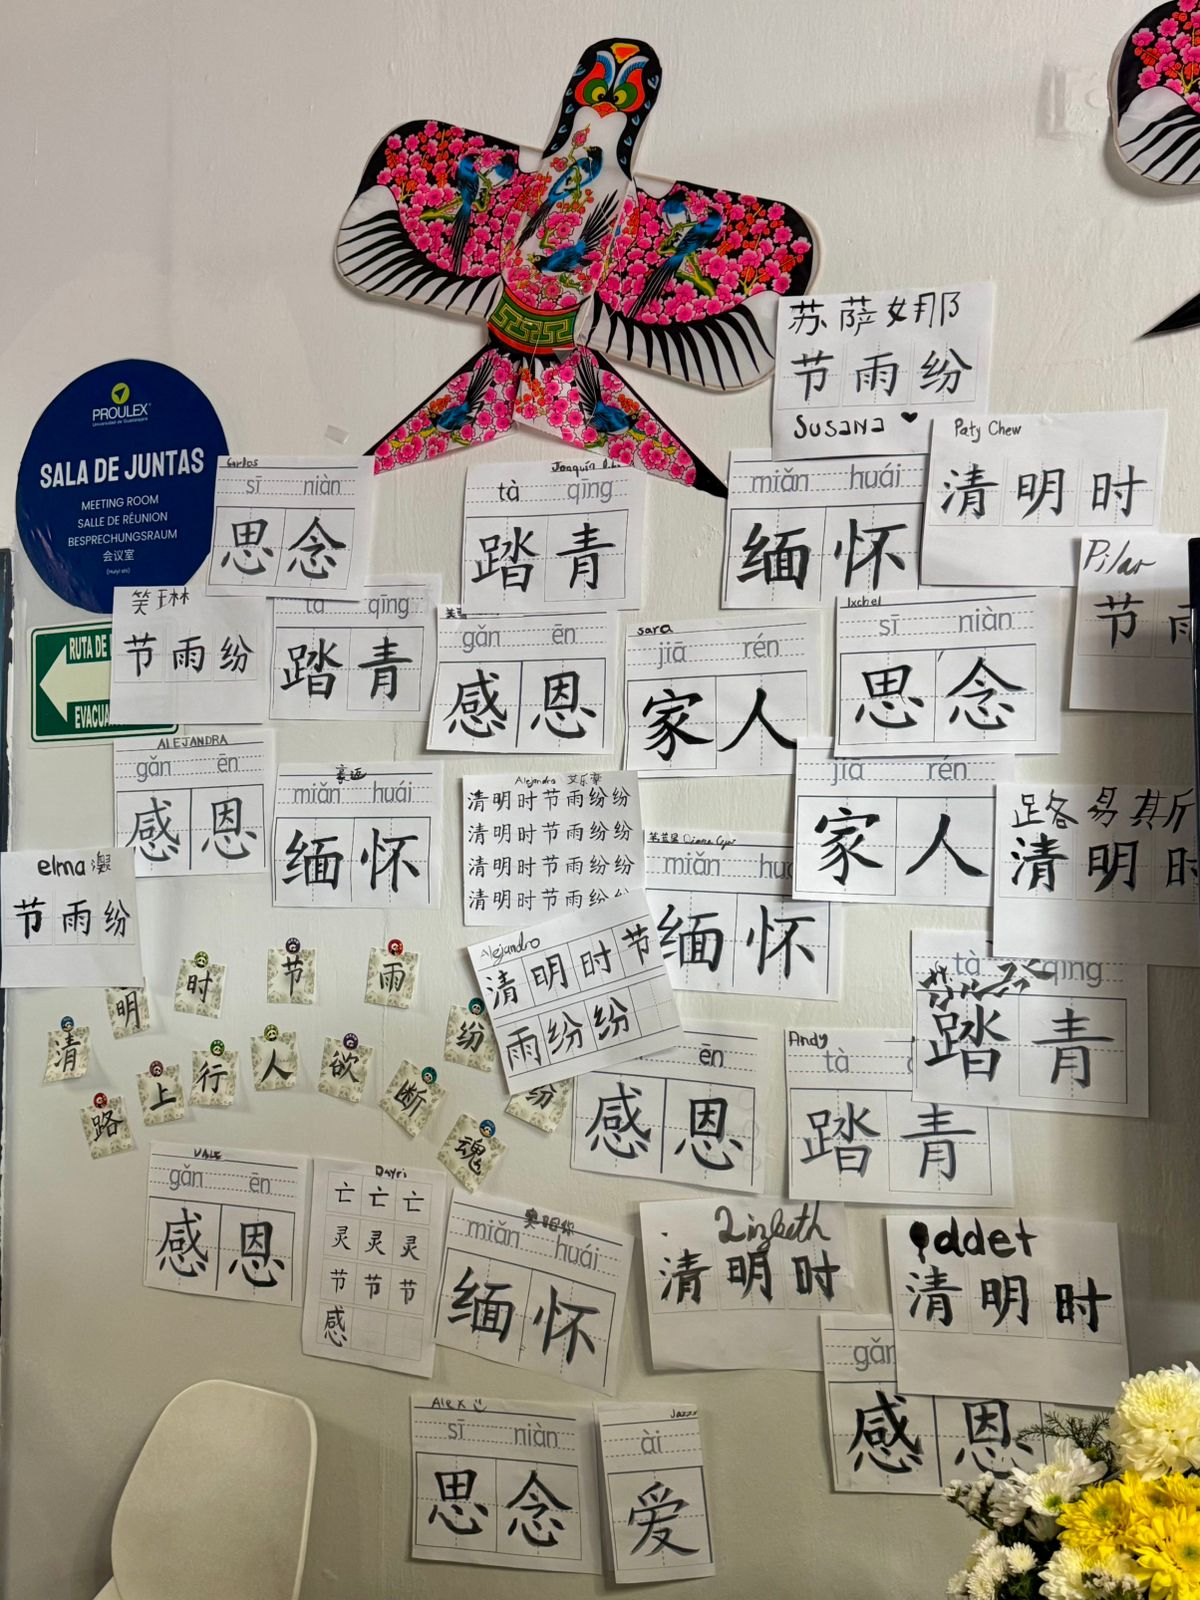 PROULEX
Universidad de Guadalajara
SALA DE JUNTAS
MEETING ROOM
SALLE DE RÉUNION
BESPRECHUNGSRAUM
会议室
(Huiyi shi)
RUTA DE
EVACUA
苏萨娜
节雨纷
Susana
Paty Chew
清明时
Pilar
节雨
Carlos
sī niàn
思念
Joaquín
tà qīng
踏青
miǎn huái
缅怀
笑琳
节雨纷
tà qīng
踏青
gǎn ēn
感恩
sara
jiā rén
家人
Ixchel
sī niàn
思念
ALEJANDRA
gǎn ēn
感恩
豪远
miǎn huái
缅怀
Alejandra 艾乐
清明时节雨纷纷
清明时节雨纷纷
清明时节雨纷纷
清明时节雨纷纷
miǎn huá
缅怀
jiā rén
家人
路易斯
清明时
elma
节雨纷
Alejandro
清明时节
雨纷纷
tà qīng
踏青
清明时节雨纷纷
路上行人欲断魂
ēn
感恩
Andy
tà
踏青
VALE
gǎn ēn
感恩
Dayri
亡亡亡
灵灵灵
节节节
感
miǎn huái
缅怀
Lizbeth
清明时
Oddet
清明时
gǎn
感恩
Alex
sī niàn
思念
Jazzy
ài
爱